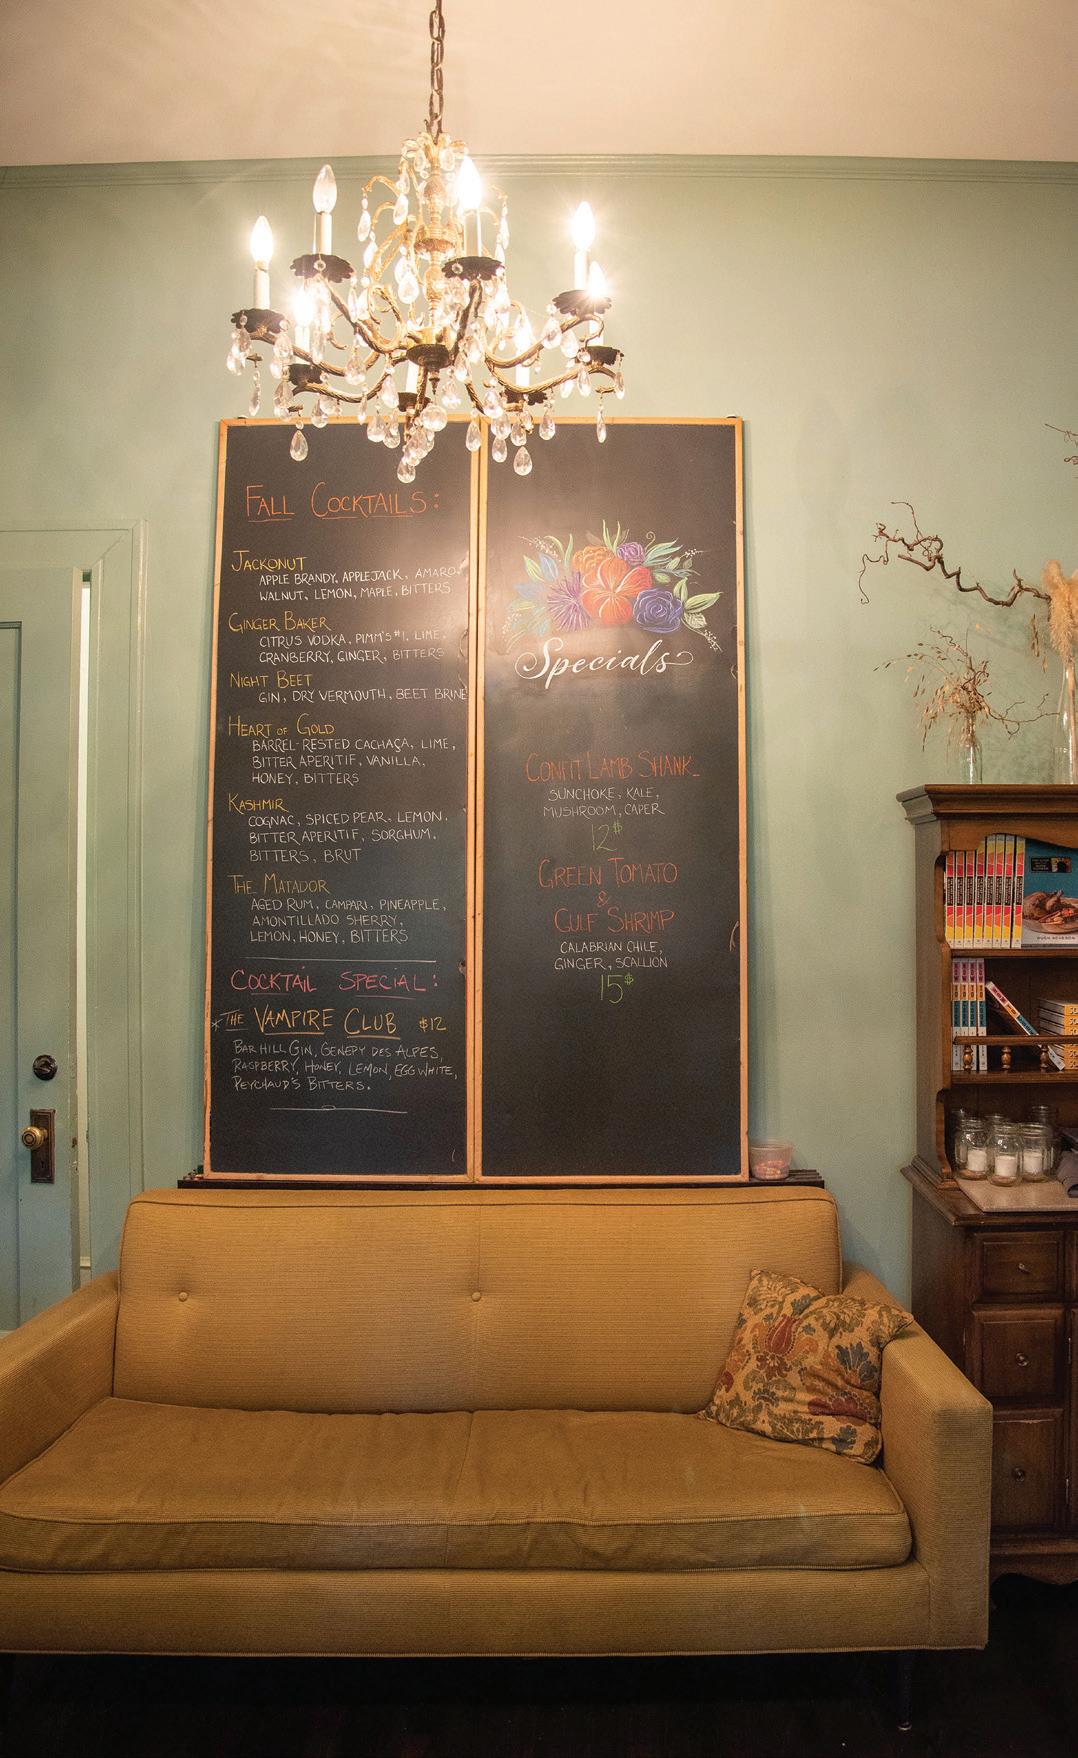 FALL COCKTAILS:
JACKONUT
APPLE BRANDY, APPLEJACK, AMARO,
WALNUT, LEMON, MAPLE, BITTERS
GINGER BAKER
CITRUS VODKA, PIMM'S #1, LIME,
CRANBERRY, GINGER, BITTERS
NIGHT BEET
GIN, DRY VERMOUTH, BEET BRINE
HEART OF GOLD
BARREL-RESTED CACHAÇA, LIME,
BITTER APERITIF, VANILLA,
HONEY, BITTERS
KASHMIR
COGNAC, SPICED PEAR, LEMON,
BITTER APERITIF, SORGHUM,
BITTERS, BRUT
THE MATADOR
AGED RUM, CAMPARI, PINEAPPLE,
AMONTILLADO SHERRY,
LEMON, HONEY, BITTERS
COCKTAIL SPECIAL:
*THE VAMPIRE CLUB $12
BAR HILL GIN, GENEPY DES ALPES,
RASPBERRY, HONEY, LEMON, EGG WHITE,
PEYCHAUD'S BITTERS.
Specials
CONFIT LAMB SHANK
SUNCHOKE, KALE,
MUSHROOM, CAPER
12$
GREEN TOMATO
&
GULF SHRIMP
CALABRIAN CHILE,
GINGER, SCALLION
15$
HUGH ACHESON